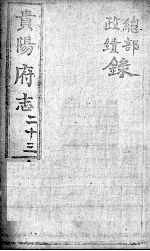 總部
政績錄
貴陽府志
二十三